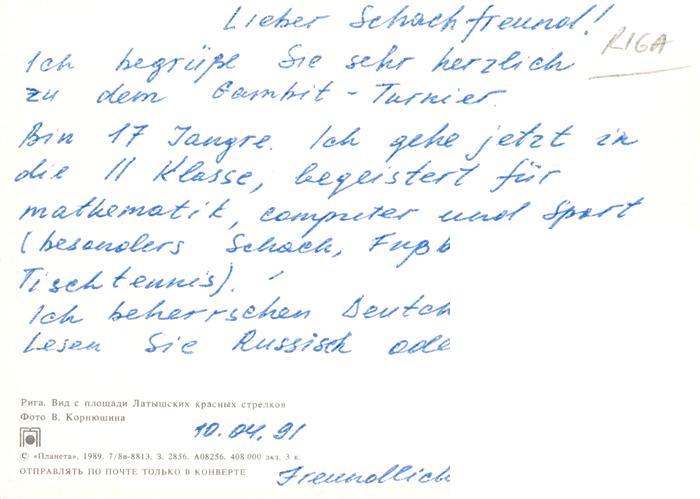 Lieber Schachfreund!
RIGA
Ich begrüße Sie sehr herzlich
zu dem Gambit-Turnier.
Bin 17 Jangre. Ich gehe jetzt in
die 11 Klasse, begeistert für
mathematik, computer und Sport
(besonders Schach, Fußb
Tischtennis).
Ich beherrschen Deutch
Lesen Sie Russisch ode
Рига. Вид с площади Латышских красных стрелков
Фото В. Корнюшина
10.04.91
© «Планета», 1989. 7/8в-8813. З. 2856. А08256. 408 000 экз. 3 к.
ОТПРАВЛЯТЬ ПО ПОЧТЕ ТОЛЬКО В КОНВЕРТЕ
Freundlich